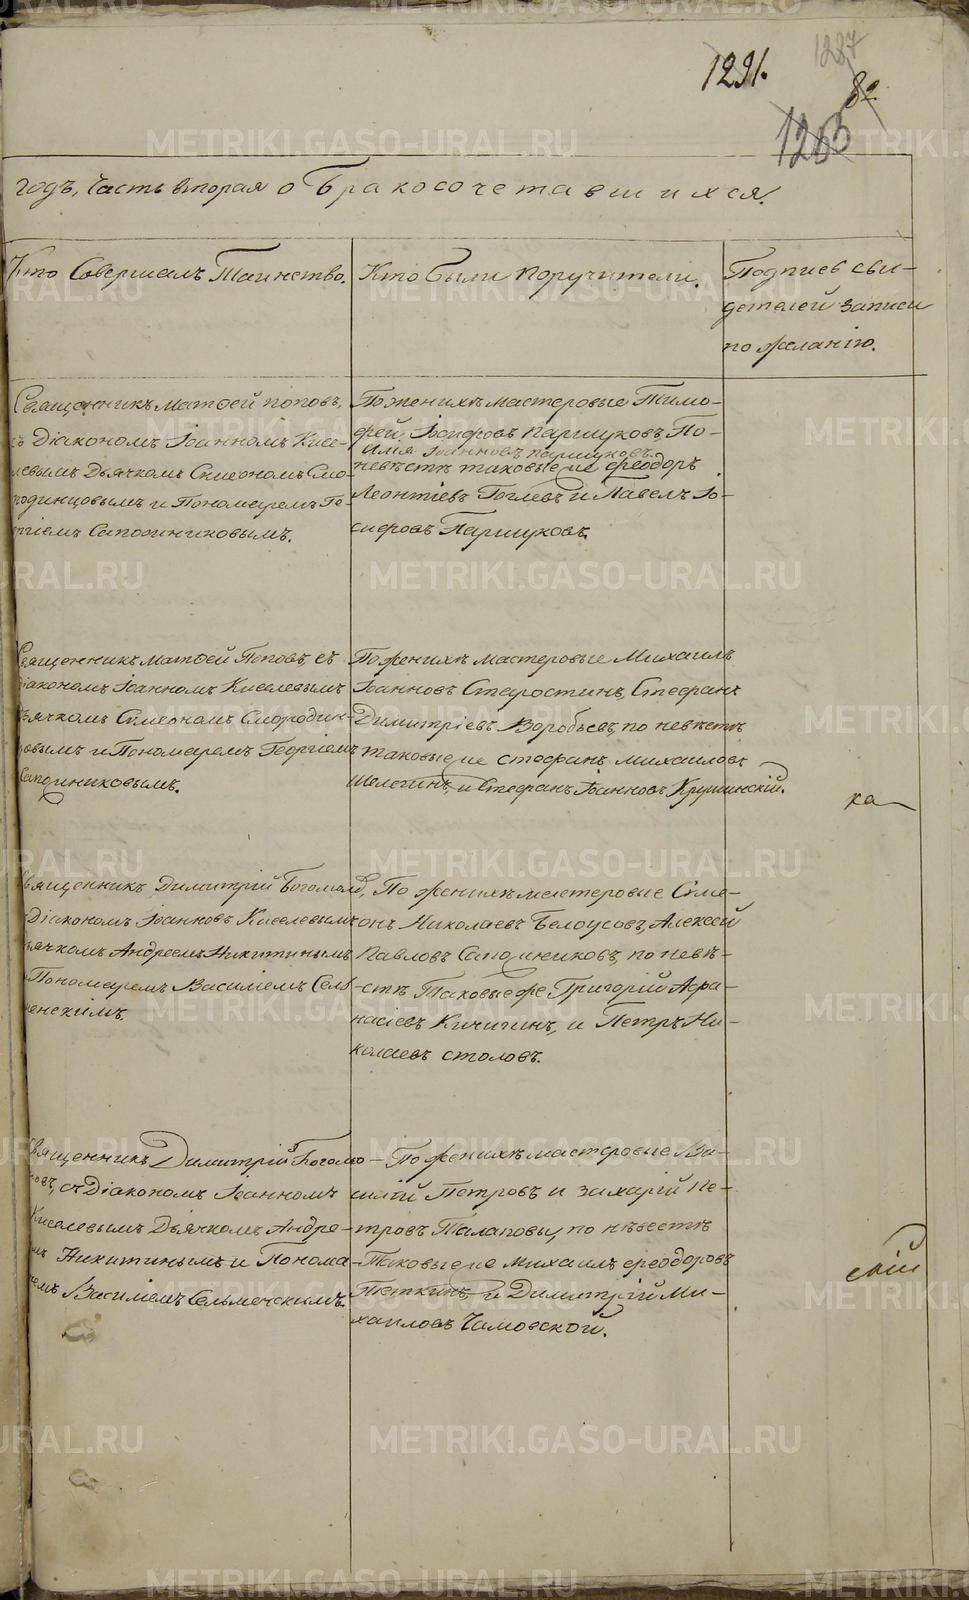 1291.
1287
82
1263
годъ, Часть вторая о Бракосочетавшихся.
Кто Совершалъ Таинство.
Кто были поручители.
Подпись сви-
детелей записи
по желанію.
Священникъ Матѳей поповъ,
съ Діакономъ Іоанномъ Кисе-
левымъ Дьячкомъ Симеономъ Смо-
родинцовымъ и Пономаремъ Ге-
оргіемъ Сапожниковымъ.
По женихѣ мастеровые Тимо-
фей Іосифовъ Паршуковъ По-
Илья Іоанновъ паршуковъ
невѣстѣ таковые же Ѳеодоръ
Леонтіевъ Гоглевъ и Павелъ Іо-
сифовъ Паршуковъ.
Священникъ Матѳей Поповъ, съ
Діакономъ Іоанномъ Киселевымъ
Дьячкомъ Симеономъ Смородин-
цовымъ и Пономаремъ Георгіемъ
Сапожниковымъ.
По женихѣ мастеровые Михаилъ
Іоанновъ Старостинъ, Стефанъ
Димитріевъ Воробьевъ, по невѣстѣ
таковые же стефанъ михаиловъ
Шелегинъ, и Стефанъ Іоанновъ Крушинскій.
ка
Священникъ Димитрій Богомоло,
Діакономъ Іоанновъ Киселевымъ
Дьячкомъ Андреемъ Никитинымъ
Пономаремъ Василіемъ Сель-
менскимъ.
По женихѣ мастеровые Симе-
онъ Николаевъ Белоусовъ, Алексей
Павловъ Сапожниковъ, по невѣ-
стѣ Таковые же Григорій Афа-
насіевъ Кичигинъ, и Петръ Ни-
колаевъ столовъ.
Священникъ Димитрій Богомо-
ловъ, съ Діакономъ Іоанномъ
Киселевымъ Дьячкомъ Андре-
емъ Никитинымъ и Понома-
ремъ Василіемъ Сельменскимъ.
По женихѣ мастеровые Ва-
силій Петровъ и Захарій Пе-
тровъ Талаповы, по нѣвестѣ
Таковые же михаилъ Ѳеодоровъ
Теткинъ, и Димитрій Ми-
хаиловъ Чамовской.
скій
METRIKI.GASO-URAL.RU